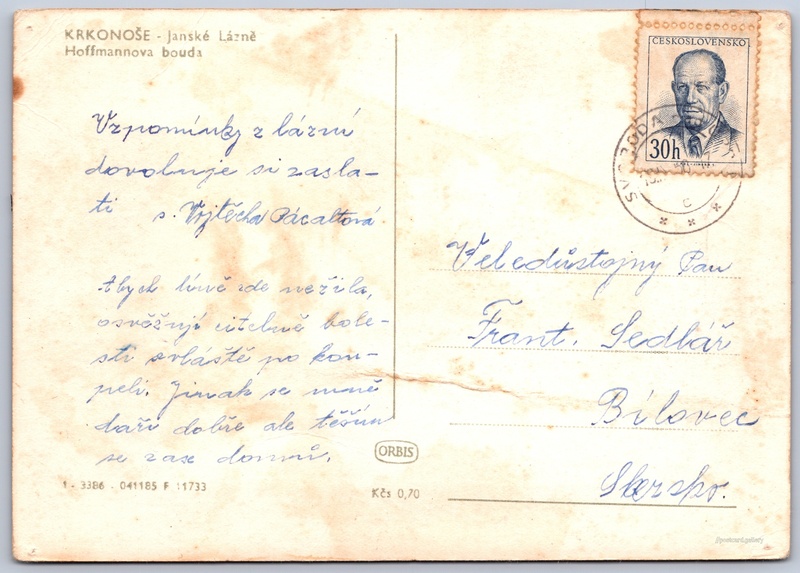 KRKONOŠE - Janské Lázně
Hoffmannova bouda
Vzpomínky z lázní
dovoluje si zasla-
ti s. Vojtěcha Pácaltová
Abych líně zde nežila,
osvěžují citelné bole-
sti zvláště po kou-
peli. Jinak se mně
daří dobře ale těším
se zase domů.
1 - 3386 - 041185 F 11733
ORBIS
Kčs 0,70
ČESKOSLOVENSKO
30h
SVOBODA
Veledůstojný Pan
Frant. Sedlář
Bílovec
Slezsko.